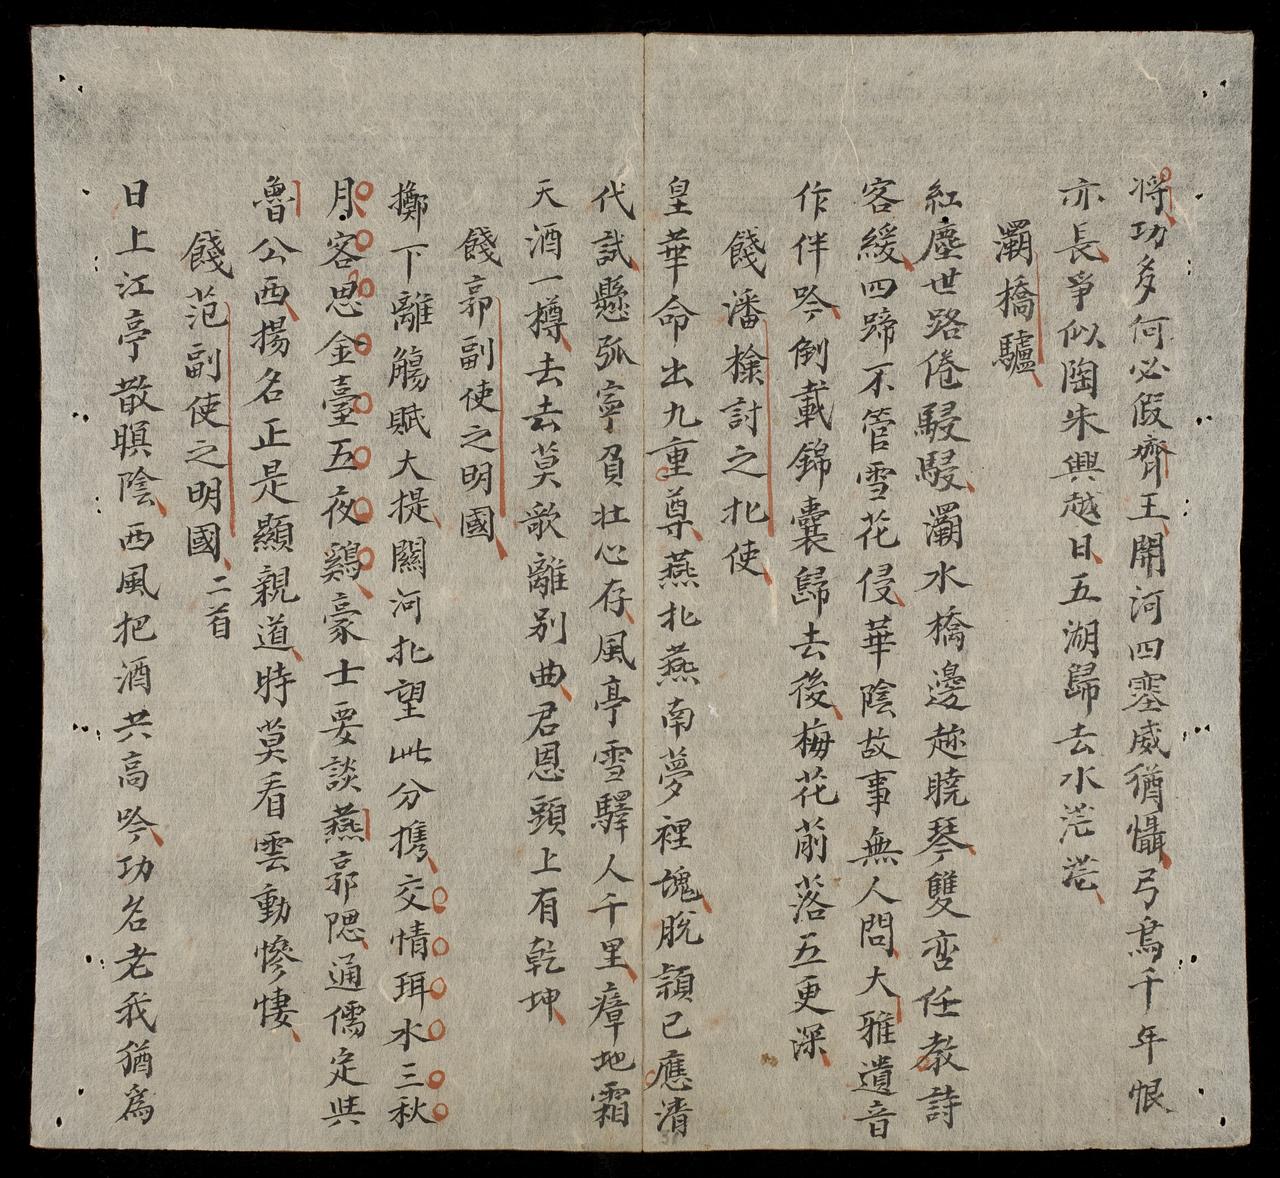 將功多何必假齊王開河四塞威猶懾弓鳥千年恨
亦長爭似陶朱興越日五湖歸去水茫茫
灞橋驢
紅塵世路倦駸駸灞水橋邊趂曉琴雙峦任教詩
客緩四蹄不管雪花侵華陰故事無人問大雅遺音
作伴吟倒載錦囊歸去後梅花萷落五更深
餞潘檢討之北使
皇華命出九重尊燕北燕南夢裡塊脫穎已應清
代試懸弧寧負壯心存風亭雪驛人千里瘴地霜
天酒一樽去去莫歌離別曲君恩頭上有乾坤
餞郭副使之明國
擲下離觴賦大提關河北望此分携交情珥水三秋
月客思金臺五夜鷄豪士要談燕郭隗通儒定是
魯公西揚名正是顯親道時莫看雲動慘悽
餞范副使之明國二首
日上江亭散暝陰西風把酒共高吟功名老我猶爲